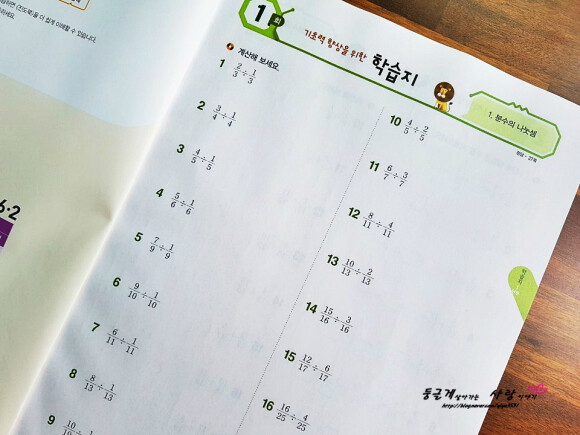 하면 <진도북>을 더 쉽게 이해할 수 있습니다.
하세요.
6·2
1 회
기초력 향상을 위한 학습지
1. 분수의 나눗셈
정답 : 27쪽
계산해 보세요.
1 2/3 ÷ 1/3
2 3/4 ÷ 1/4
3 4/5 ÷ 1/5
4 5/6 ÷ 1/6
5 7/9 ÷ 1/9
6 9/10 ÷ 1/10
7 6/11 ÷ 1/11
8 8/13 ÷ 1/13
9 10/19 ÷ 1
10 4/5 ÷ 2/5
11 6/7 ÷ 3/7
12 8/11 ÷ 4/11
13 10/13 ÷ 2/13
14 15/16 ÷ 3/16
15 12/17 ÷ 6/17
16 16/25 ÷ 4/25
둥글게 살아가는 사랑 이야기